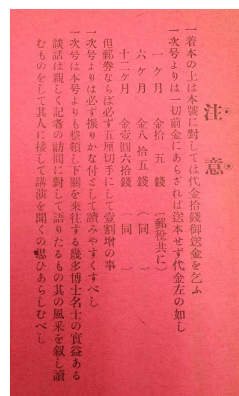 注意
一着本の上は本號に對しては代金拾錢御送金を乞ふ
一次號よりは一切前金にあらされば送本せず代金左の如し
一ヶ月 金拾五錢 (郵稅共に)
六ヶ月 金八拾五錢 (同)
十二ヶ月 金壹圓六拾錢 (同)
但郵券ならば必ず五厘切手にして壹割增の事
一次號よりは必ず振りかな付として讀みやすくすべし
一次號は本號よりも整頓し下關を來往する幾多博士名士の實益ある
談話は親しく記者の訪問に對して語りたるもの其の風釆を叙し讀
むものをして其人に接して講演を聞くの思ひあらしむべし